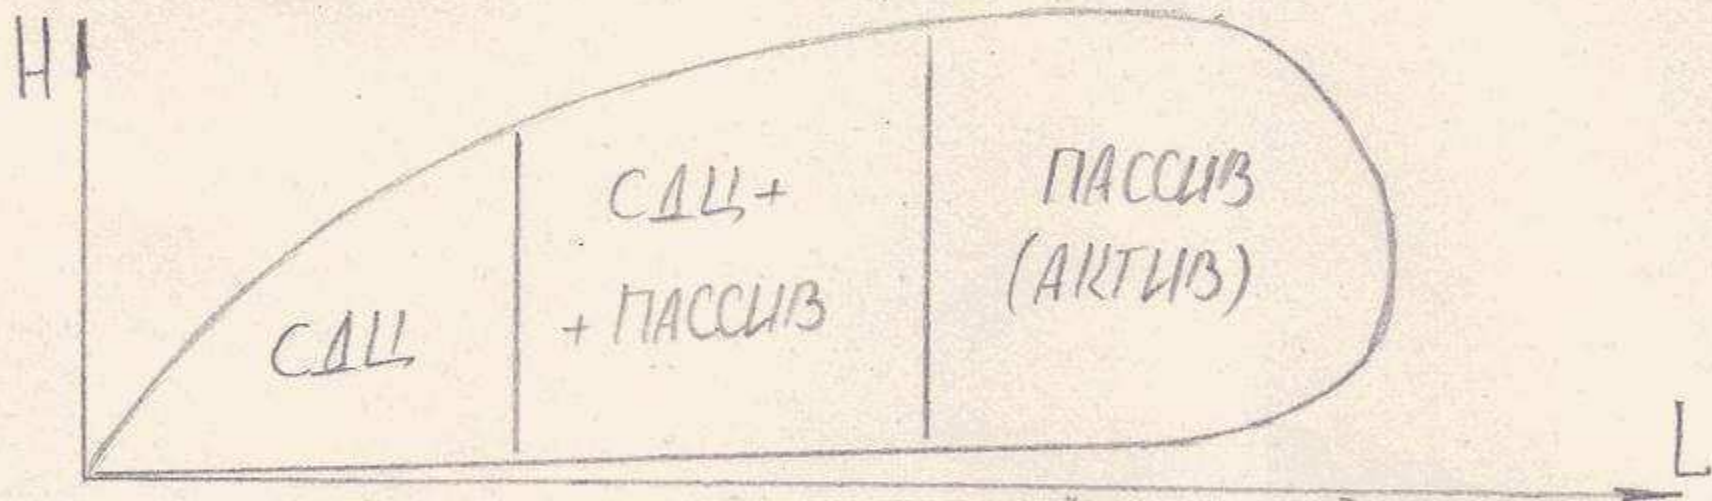 H
СДЦ
СДЦ+
+ ПАССИВ
ПАССИВ
(АКТИВ)
L